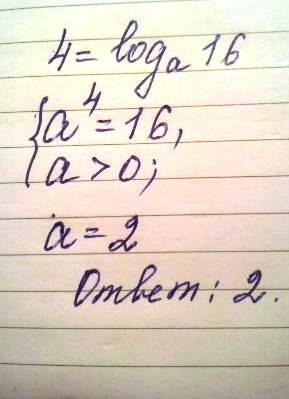 4 = logₐ 16
{ a⁴ = 16,
a > 0;
a = 2
Ответ: 2.